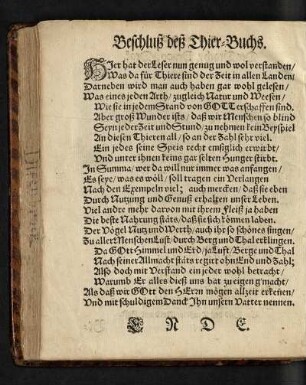 Beschluß deß Thier-Buchs.
HIer hat der Leser nun genug und wol verstanden/
Was da für Thiere sind der Zeit in allen Landen/
Darneben wird man auch haben gar wohl gelesen/
Was eines jeden Arth/ zugleich Natur und Weesen/
Wie sie in jedem Stand von GOTT erschaffen sind.
Aber groß Wunder ists/ daß wir Menschen so blind
Seyn jeder Zeit und Stund/ zu nehmen kein Beyspiel
An diesen Thieren all/ so an der Zahl sehr viel.
Ein jedes seine Speis recht embsiglich erwirbt/
Und unter ihnen keins gar selten Hunger stirbt.
In Summa/ wer da will nur immer was anfangen/
Es seye/ was es woll/ soll tragen ein Verlangen
Nach den Exempeln viel; auch mercken/ daß sie eben
Durch Nutzung und Genuß erhalten unser Leben.
Viel andre mehr darvon mit ihrem Fleiß ja haben
Die beste Nahrung stäts/ daß sie sich können laben.
Der Vögel Nutz und Werth/ auch ihr so schönes singen/
Zu aller Menschen Lust/ durch Berg und Thal erklingen.
Da GOtt Himmel und Erd/ ja Luft/ Berge und Thal
Nach seiner Allmacht stäts regirt ohn End und Zahl;
Also doch mit Verstand ein jeder wohl betracht/
Warumb Er alles dieß uns hat zu eigen g'macht/
Als daß wir GOtt den HErrn mögen allzeit erkennen/
Und mit schuldigem Danck Ihn unsern Vatter nennen.
E N D E.